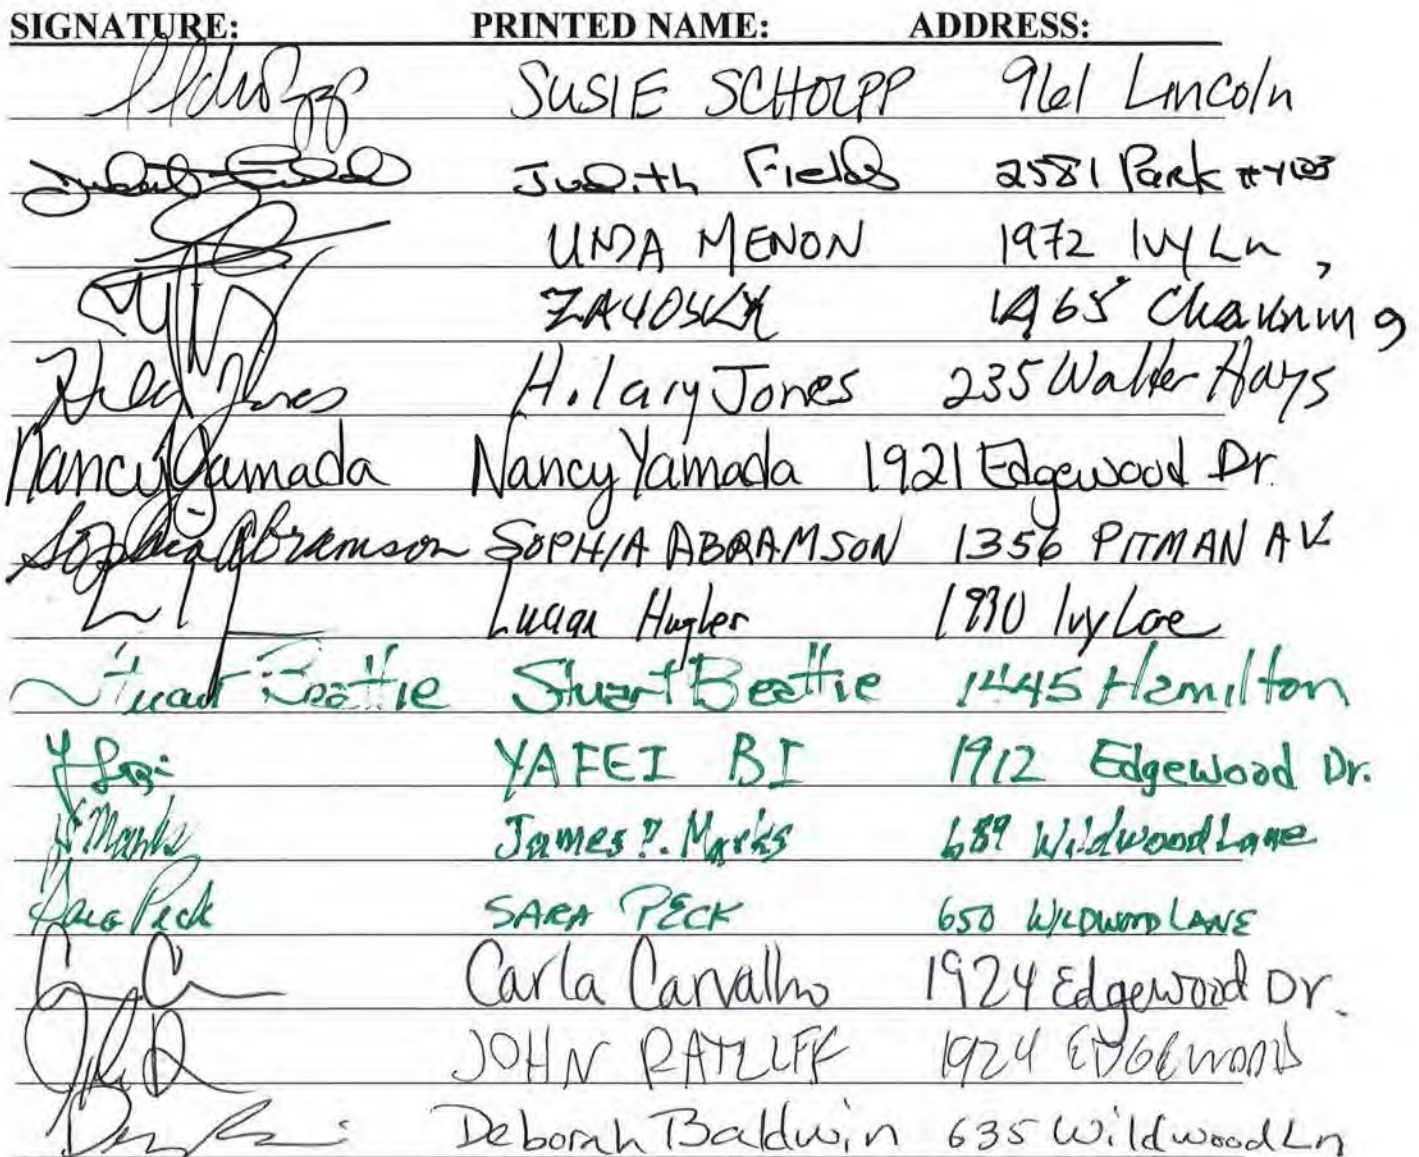 SIGNATURE: PRINTED NAME: ADDRESS:
SUSIE SCHOLPP 961 Lincoln
Judith Fields 2581 Park
UMA MENON 1972 Ivy Ln
1965 Channing
Hilary Jones Hilary Jones 235 Walter Hays
Nancy Yamada Nancy Yamada 1921 Edgewood Dr.
Sophia Abramson SOPHIA ABRAMSON 1356 PITMAN AV
Hughes Ivy Lane
Stuart Beattie Stuart Beattie 1445 Hamilton
YAFEI BI 1912 Edgewood Dr.
Marks James P. Marks 689 Wildwood Lane
Sara Peck SARA PECK 650 WILDWOOD LANE
Carla Carvalho 1924 Edgewood Dr.
JOHN RATLIFF 1924 EDGEWOOD
Deborah Baldwin 635 Wildwood Ln